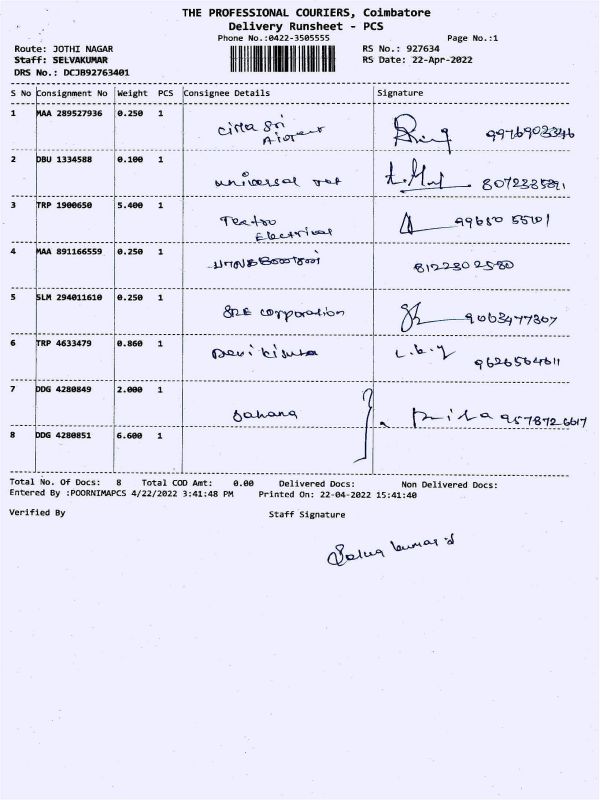 THE PROFESSIONAL COURIERS, Coimbatore
Delivery Runsheet - PCS
Phone No.:0422-3505555 Page No.:1
Route: JOTHI NAGAR RS No.: 927634
Staff: SELVAKUMAR RS Date: 22-Apr-2022
DRS No.: DCJB92763401
S No Consignment No Weight PCS Consignee Details Signature
1 MAA 289527936 0.250 1
Sri 9976903346
2 DBU 1334588 0.100 1
universal
3 TRP 1900650 5.400 1
Electrical
4 MAA 891166559 0.250 1
8122302580
5 SLM 294011610 0.250 1
SRE corporation 9063477307
6 TRP 4633479 0.860 1
9626564611
7 DDG 4280849 2.000 1
Sahana 9578726617
8 DDG 4280851 6.600 1
Total No. Of Docs: 8 Total COD Amt: 0.00 Delivered Docs: Non Delivered Docs:
Entered By :POORNIMAPCS 4/22/2022 3:41:48 PM Printed On: 22-04-2022 15:41:40
Verified By Staff Signature
Selva kumar